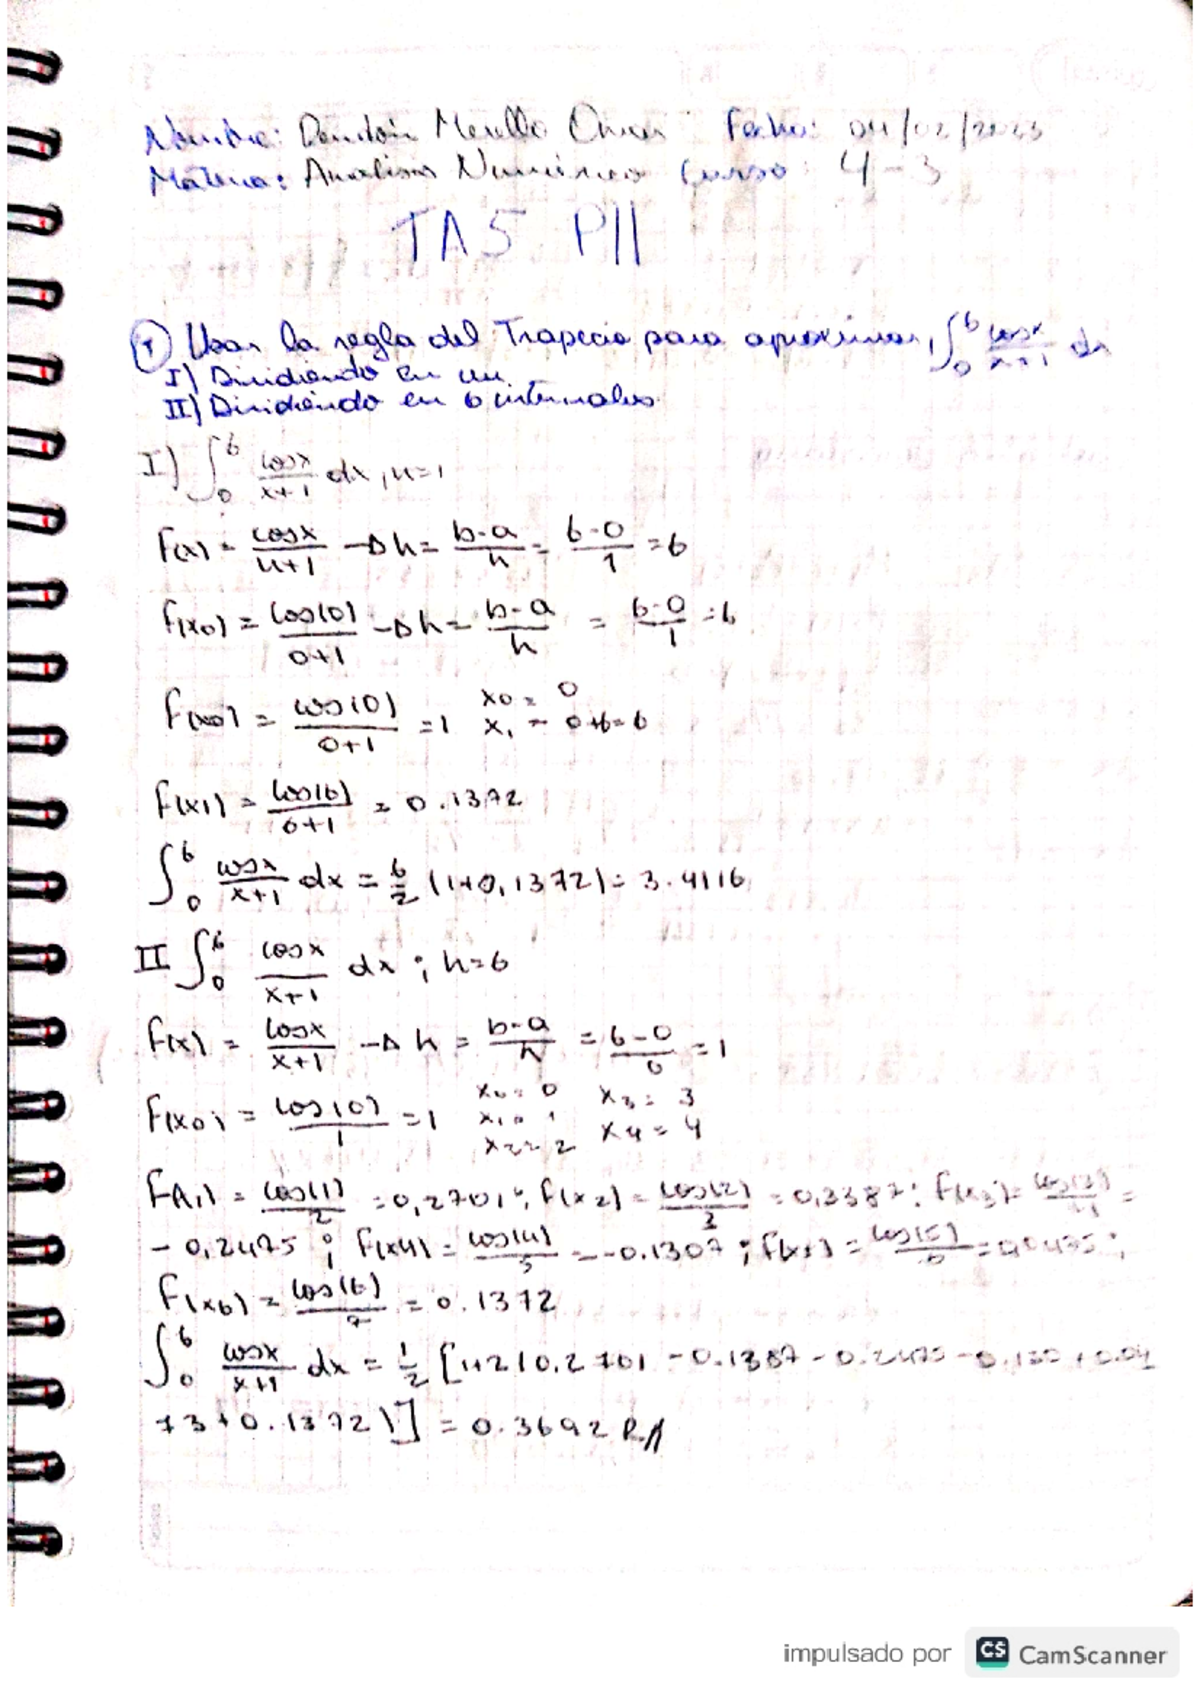 Nombre: Fecha: 04/02/2023
Materia: Analisis Numérico Curso: 4-3
TA5 P11
① Usar la regla del Trapecio para aproximar, ∫₀⁶ cosx/x+1 dx
I) Dividiendo en un.
II) Dividiendo en 6 intervalos.
I) ∫₀⁶ cosx/x+1 dx, n=1
F(x) = cosx/x+1 → h = b-a/n = 6-0/1 = 6
f(x0) = cos(0)/0+1 → h = b-a/n = 6-0/1 = 6
f(x0) = cos(0)/0+1 = 1 x0 = 0
x1 = 0+6=6
f(x1) = cos(6)/6+1 = 0.1372
∫₀⁶ cosx/x+1 dx = 6/2 (1+0,1372) = 3.4116
II ∫₀⁶ cosx/x+1 dx ; n=6
f(x) = cosx/x+1 → h = b-a/n = 6-0/6 = 1
f(x0) = cos(0)/1 = 1 x0 = 0 x3 = 3
x1 = 1 x4 = 4
x2 = 2
F(x1) = cos(1)/2 = 0,2701; f(x2) = cos(2)/3 = 0,3387; f(x3) = cos(3)/4 =
- 0,2475 ; f(x4) = cos(4)/5 = -0.1307 ; f(x5) = cos(5)/6 = 0,0475;
F(x6) = cos(6)/7 = 0.1372
∫₀⁶ cosx/x+1 dx = 1/2 [1+2(0.2701 - 0.1387 - 0.2475 - 0.130 + 0.04
73 + 0.1372)] = 0.3692 R//
impulsado por CS CamScanner